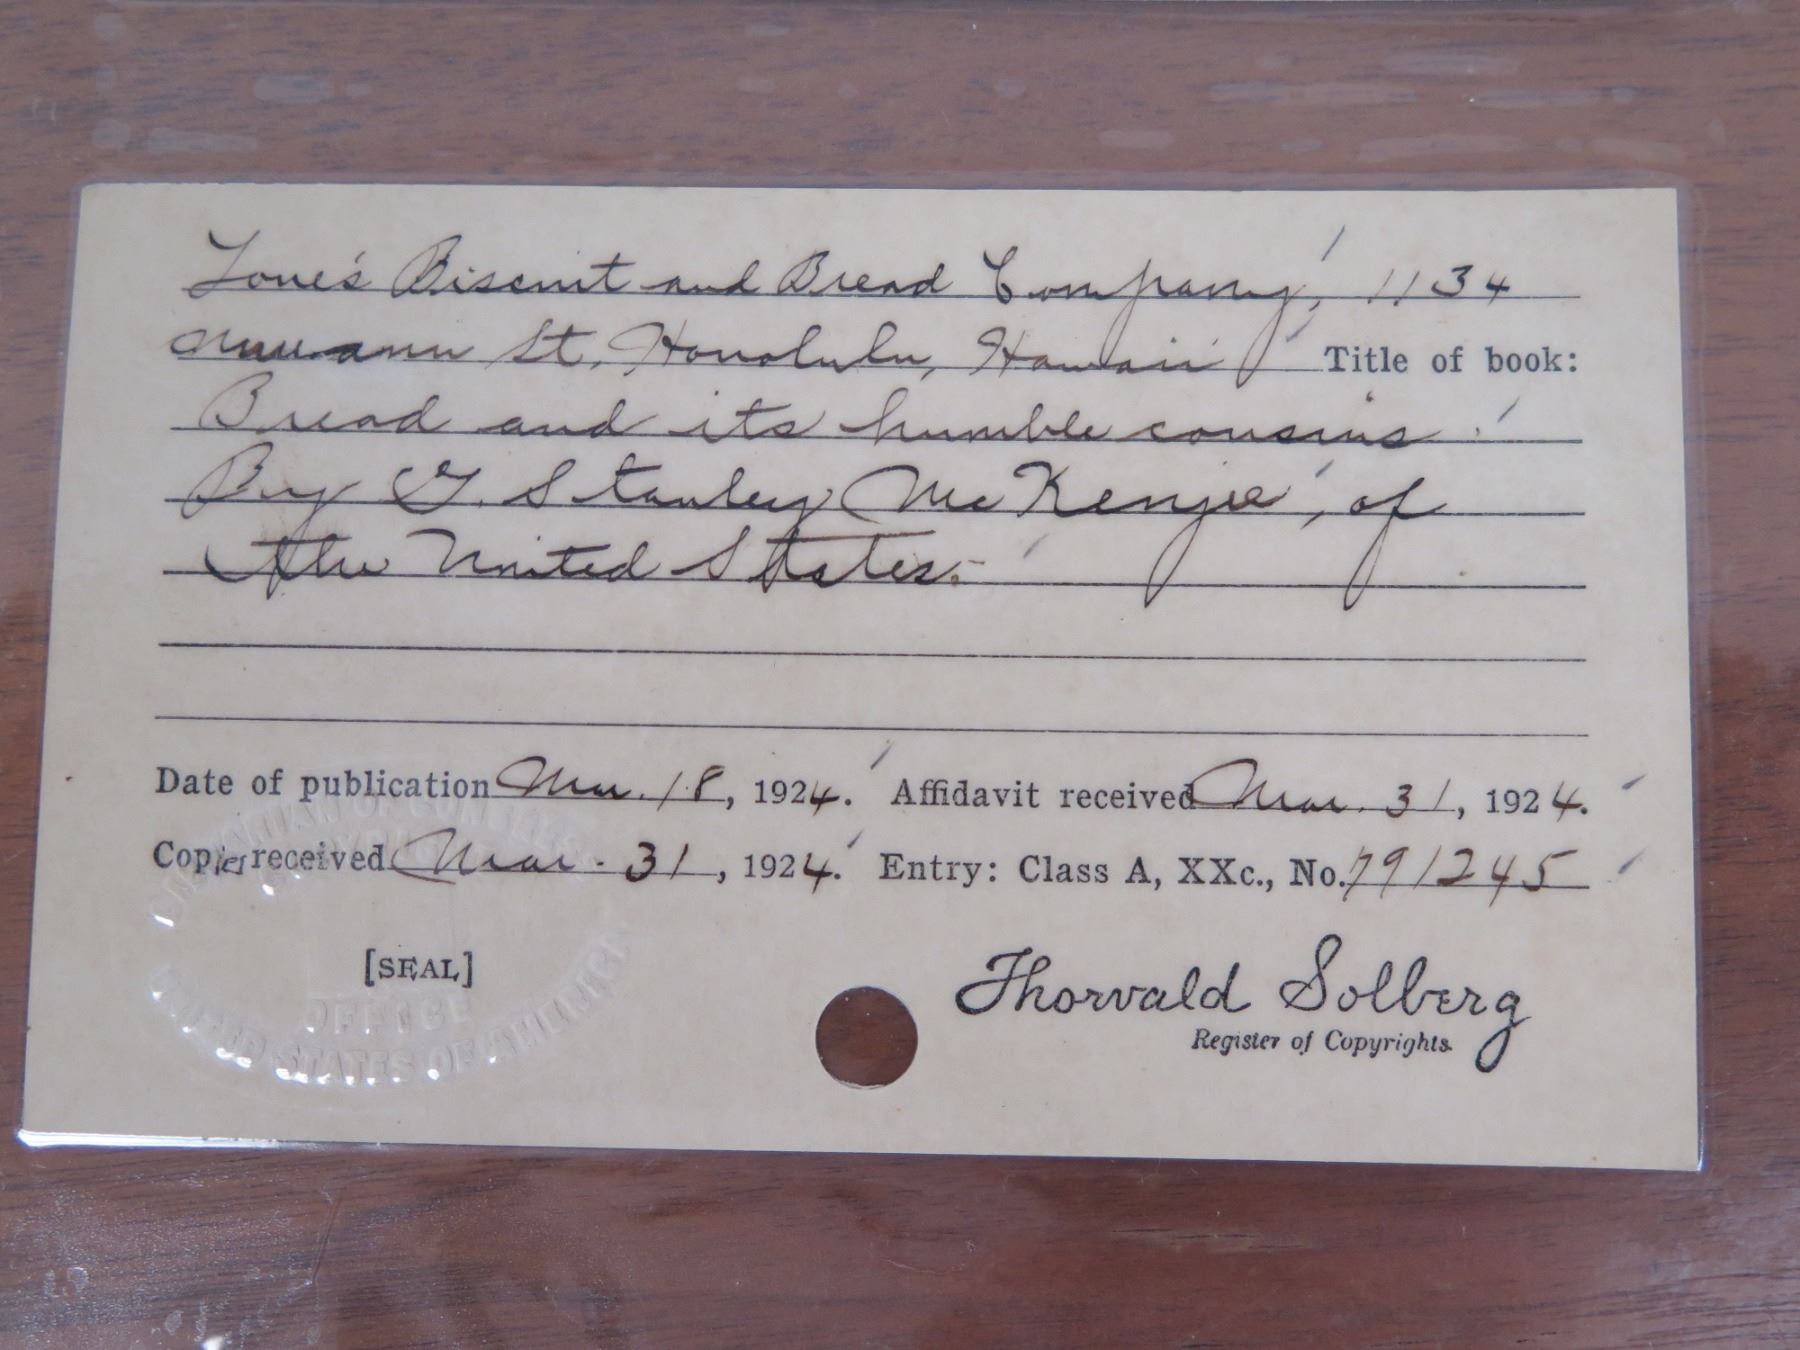 Love's Biscuit and Bread Company, 1134
Nuuanu St., Honolulu, Hawaii Title of book:
Bread and its humble cousins.
By G. Stanley McKenzie, of
the United States.
Date of publication Mar. 18, 1924. Affidavit received Mar. 31, 1924.
Copies received Mar. 31, 1924. Entry: Class A, XXc., No. 791245
[SEAL]
OFFICE
UNITED STATES OF AMERICA
Thorvald Solberg
Register of Copyrights.